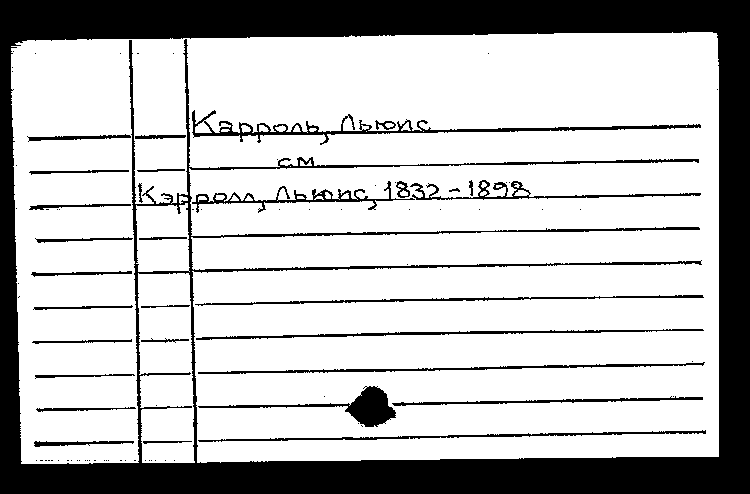 Карроль, Льюис
см
Кэрролл, Льюис, 1832-1898